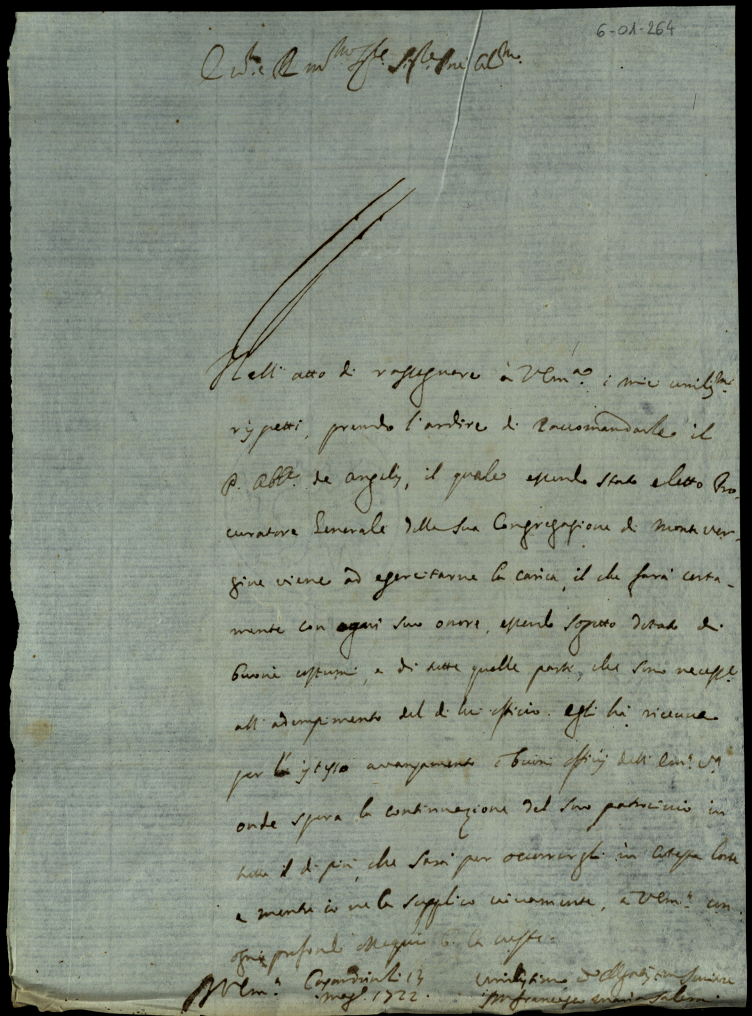 6-01-264
Nell' atto di rassegnare à V Em.ª i miei umiliss.mi
rispetti, prendo l'ardire di Raccomandarle il
P. Abb.e de Angelis, il quale essendo stato eletto Pro-
curatore Generale della sua Congregazione di Monte Ver-
gine viene ad esercitarne la carica, il che farà certa-
mente con ogni suo onore, essendo sogetto dotato di
buoni costumi, e di tutte quelle parti, che sono necess.e
all' adempimento del di lui officio. egli hà ricevuto
per l' istesso avanzamento i buoni officij dell' Em.ª V.ª
onde spera la continuazione del suo patrocinio in
tutto il di più, che sarà per occorrergli in cotesta Corte
e mentre io ne la supplico vivamente, a V Em.ª con
ogni profondo ossequio b. la veste.
V Em.ª 13 Umilissimo Servitore
1722. Francesco Maria